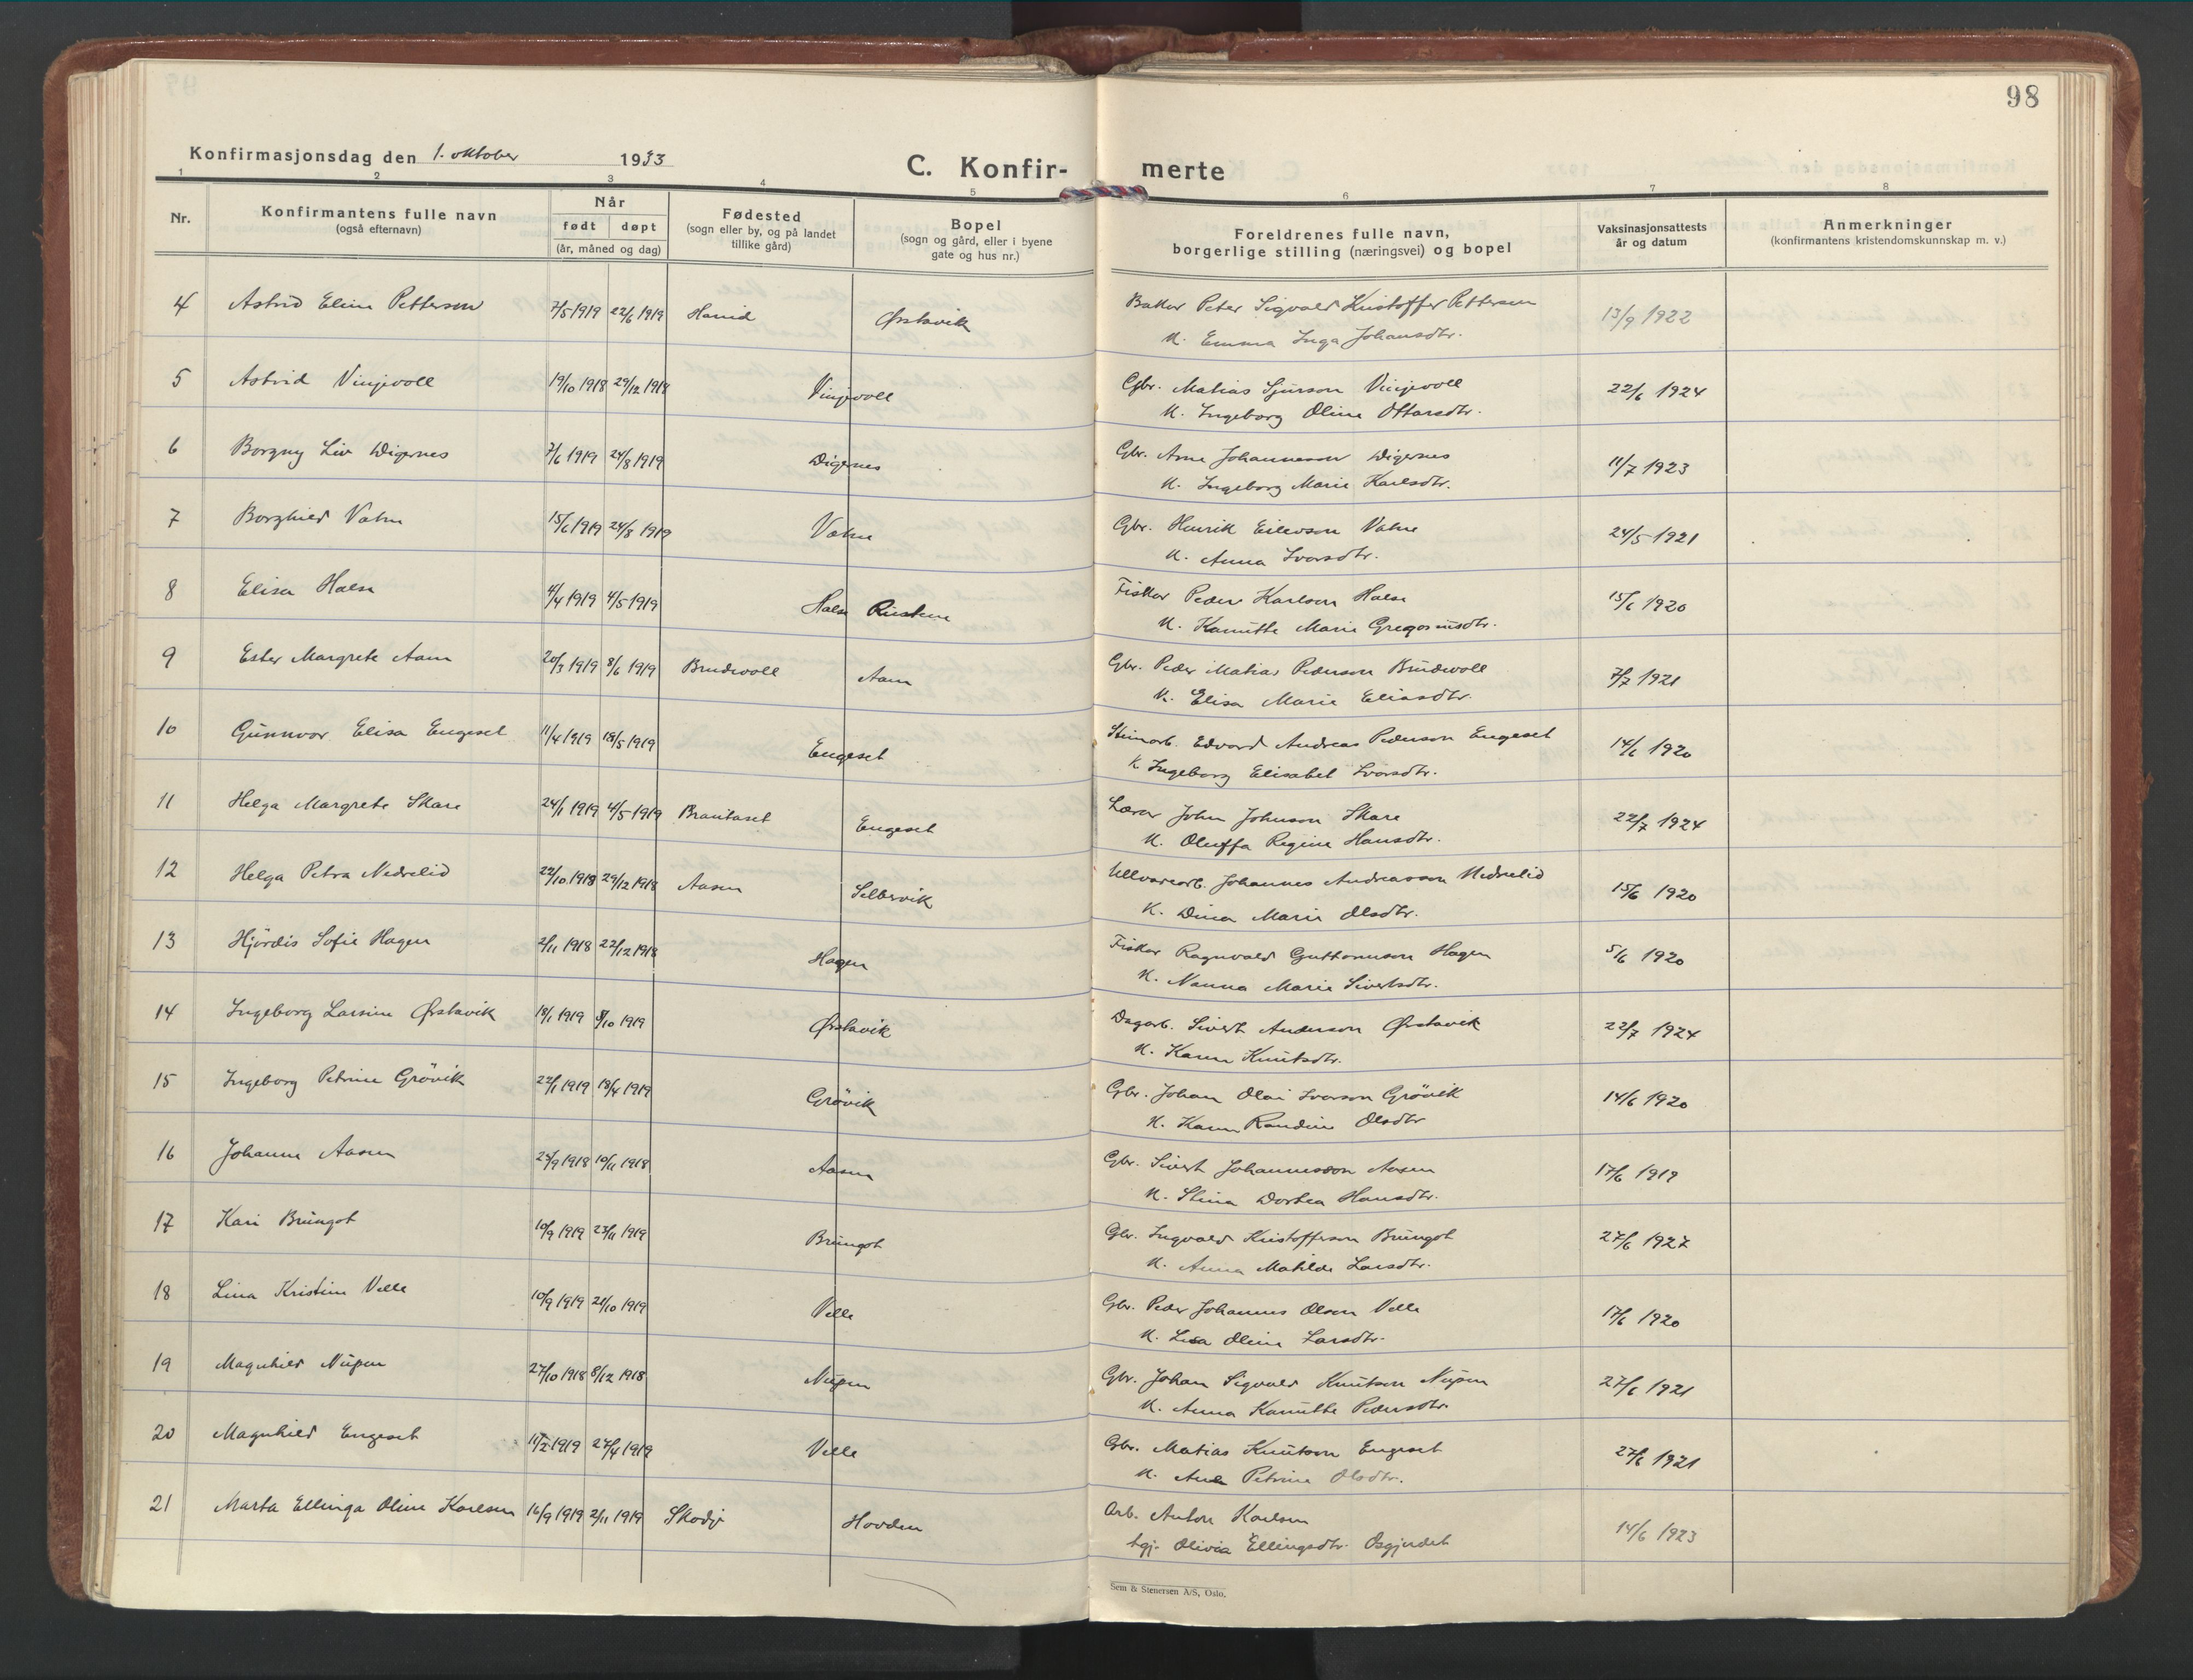 98
Konfirmasjonsdag den 1. oktober 1933
C. Konfir- merte
1 2 3 4 5 6 7 8
Nr.
Konfirmantens fulle navn
(også efternavn)
Når
født døpt
(år, måned og dag)
Fødested
(sogn eller by, og på landet
tillike gård)
Bopel
(sogn og gård, eller i byene
gate og hus nr.)
Foreldrenes fulle navn,
borgerlige stilling (næringsvei) og bopel
Vaksinasjonsattests
år og datum
Anmerkninger
(konfirmantens kristendomskunnskap m. v.)
4 Astrid Eline Pettersen 7/5 1919 22/6 1919 Hareid Ørstavik Baker Peter Sigvald Kristoffer Pettersen 13/9 1922
K. Emma Inga Johansdtr.
5 Astrid Vinjevoll 19/10 1918 29/12 1918 Vinjevoll Gbr. Matias Sjurson Vinjevoll 22/6 1924
K. Ingeborg Oline Ottarsdtr.
6 Borgny Liv Digernes 7/6 1919 24/8 1919 Digernes Gbr. Arne Johannesson Digernes 11/7 1923
K. Ingeborg Marie Karlsdtr.
7 Borghild Vatne 15/6 1919 24/8 1919 Vatne Gbr. Henrik Eilevson Vatne 24/5 1921
K. Anna Ivarsdtr.
8 Elisa Halse 4/4 1919 4/5 1919 Halse Fisker Peder Karlson Halse 15/6 1920
K. Kanutte Marie Gregoriusdtr.
9 Ester Margrete Aam 20/3 1919 8/6 1919 Brudevoll Aam Gbr. Peder Matias Pederson Brudevoll 7/7 1921
K. Elisa Marie Eliasdtr.
10 Gunnvor Elisa Engeset 11/4 1919 18/5 1919 Engeset Steinarb. Edvard Andreas Pederson Engeset 14/6 1920
K. Ingeborg Elisabet Ivarsdtr.
11 Helga Margrete Skare 24/1 1919 4/5 1919 Brautaset Engeset Lærer John Johnson Skare 22/7 1924
K. Oluffa Regine Hansdtr.
12 Helga Petra Nedrelid 22/10 1918 29/12 1918 Aasen Selbervik Ullvarearb. Johannes Andreasson Nedrelid 15/6 1920
K. Dina Marie Olsdtr.
13 Hjördis Sofie Hagen 2/11 1918 22/12 1918 Hagen Fisker Ragnvald Guttormson Hagen 5/6 1920
K. Nanna Marie Sivertsdtr.
14 Ingeborg Larsine Ørstavik 18/1 1919 5/10 1919 Ørstavik Dagarb. Sivert Anderson Ørstavik 22/7 1924
K. Karen Knutsdtr.
15 Ingeborg Petrine Grövik 22/1 1919 18/4 1919 Grövik Gbr. Johan Olai Ivarson Grövik 14/6 1920
K. Karen Randine Olsdtr
16 Johanne Aasen 25/9 1918 10/11 1918 Aasen Gbr. Sivert Johannesson Aasen 17/6 1919
K. Stina Dortea Hansdtr.
17 Kari Brungot 10/9 1919 23/11 1919 Brungot Gbr. Ingvald Kristofferson Brungot 27/6 1927
K. Anna Matilde Larsdtr.
18 Lina Kristine Velle 10/9 1919 21/10 1919 Velle Gbr. Peder Johannes Olson Velle 17/6 1920
K. Lisa Oline Larsdtr.
19 Magnhild Nupen 27/10 1918 8/12 1918 Nupen Gbr. Johan Sigvald Knutson Nupen 27/6 1921
K. Anna Kanutte Pedersdtr.
20 Magnhild Engeset 11/2 1919 27/4 1919 Velle Gbr. Matias Knutson Engeset 27/6 1921
K. Ane Petrine Olsdtr.
21 Marta Ellinga Oline Karlsen 16/9 1919 2/11 1919 Skodje Hovden Arb. Anton Karlsen 14/6 1923
tgj. Olivia Ellingsdtr. Osgjerdet
Sem & Stenersen A/S, Oslo.